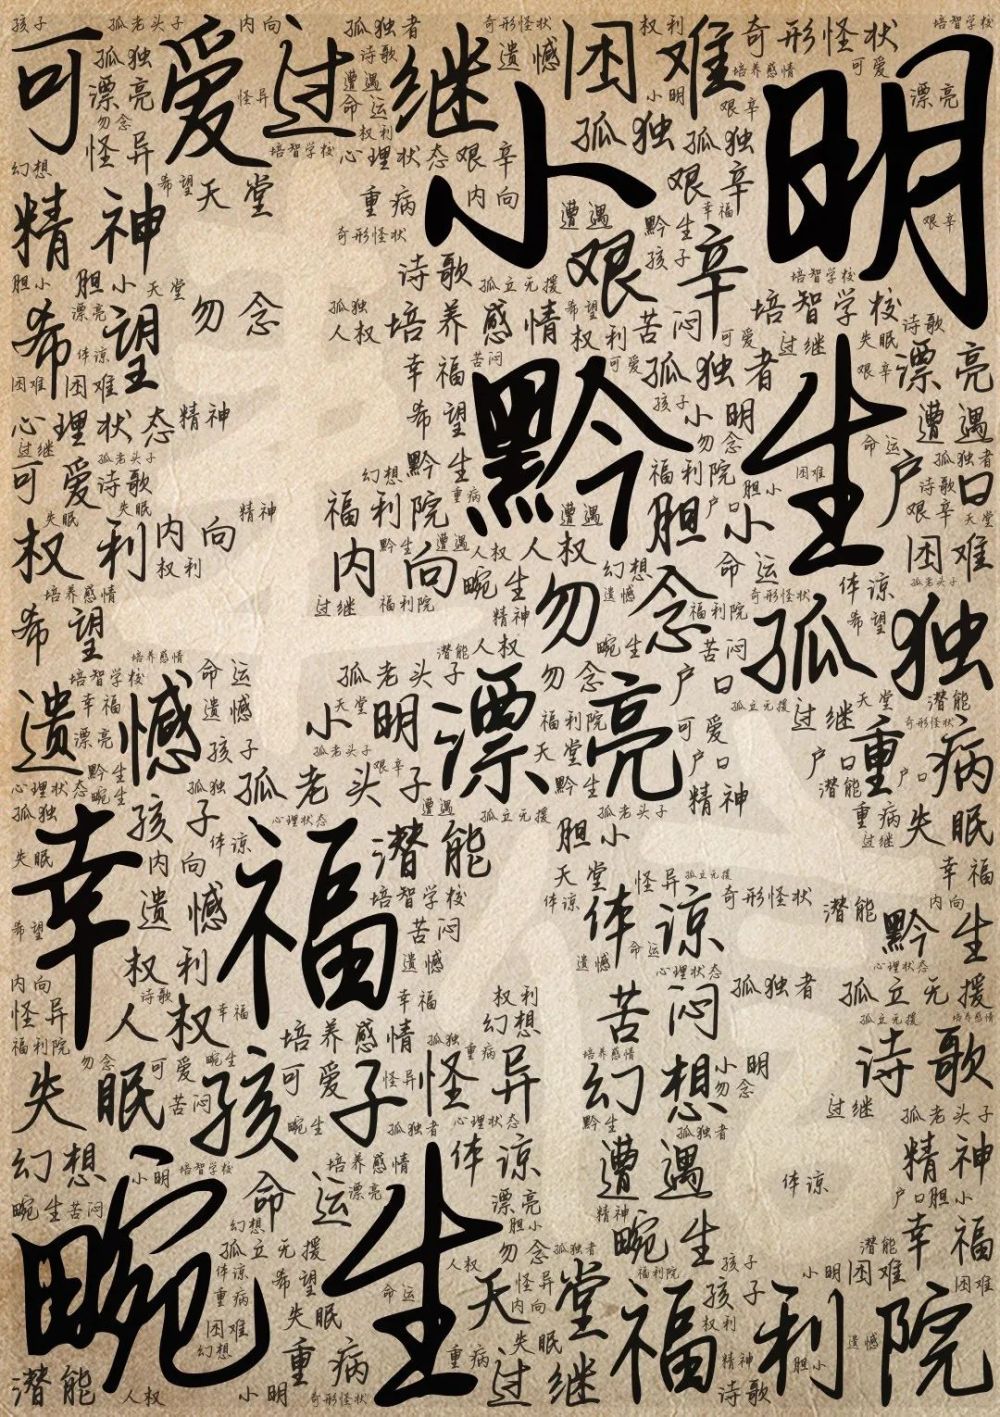 孩子 孤老头子 内向 孤独者 奇形怪状 权利 培智学校
可爱 孤独 过继 诗歌 继 遗憾 困难 奇形怪状
漂亮 怪异 遭遇 小明 培养感情 可爱 漂亮
勿念 命运 艰辛
怪异 权利 孤独 孤独
幻想 培智学校 心理状态 艰辛 小明
希望 天堂 重病 内向 艰辛
精神 奇形怪状 遭遇 黔生 幸福 艰辛
胆小 胆小 天堂 诗歌 孤立无援 艰辛 孩子 培智学校
希望 漂亮 勿念 孤独 培养感情 希望 苦闷 培智学校
体谅 人权 权利 可爱 过继 失眠 诗歌
困难 困难 幸福 苦闷 可爱 孤独者 艰辛 漂亮
心理状态 精神 希望 黔生 孩子 小明 命运 遭遇
过继 孤老头子 勿念 孤独者
可爱 诗歌 幻想 黔生 福利院 困难 户口 诗歌
失眠 失眠 精神 福利院 重病 遭遇 胆小 户口 胆小 艰辛 天堂
权利 内向 黔生 遭遇 人权 人权 困难
权利 内向 畹生 幻想 命运 体谅 孤老头子
培养感情 过继 福利院 精神 勿念 遗憾 福利院 奇形怪状
希望 潜能 人权 畹生 苦闷 孤独 希望
培养感情 孤老头子 勿念 户口
培智学校 命运 天堂 孤立无援 过继 天堂 潜能
遗憾 幸福 遗憾 小明 漂亮 福利院 可爱 奇形怪状
漂亮 孩子 孤老头子 天堂 户口 户口 重病
黔生 艰辛 黔生 户口
心理状态 畹生 孤独 孤老头子 精神 潜能
孤独 孩子 心理状态 遭遇 孤立无援 孤老头子 重病 失眠
幸福 体谅 潜能 胆小 过继
失眠 内向 天堂 怪异 孤立无援 幸福
遗憾 培智学校 体谅 体谅 奇形怪状 潜能 内向
希望 苦闷 命运 黔生
权利 遗憾 遗憾 心理状态
内向 诗歌 幸福 权利 孤独者 孤立无援
怪异 人权 幸福 幻想 苦闷 孤立无援 培养感情
福利院 培养感情 孤独 重病
失眠 勿念 可爱 畹生 孩子 可爱 怪异 怪异 培养感情 幻想 小明 诗歌
苦闷 勿念 过继
畹生 孤独者 心理状态 黔生 孤独者 孤老头子
幻想 小明 培智学校 培养感情 体谅 遭遇 体谅 精神
畹生 苦闷 命运 漂亮 漂亮 户口 胆小
畹生 幻想 胆小 精神 畹生 幸福
孤立无援 人权 勿念 孤独者 潜能
体谅 希望 命运 天堂 怪异 福利院 孩子 小明 困难 困难
重病 内向 孩子 福利院
困难 失眠 失眠 权利 遗憾
幻想 重病 重病 过继 精神 胆小
潜能 人权 小明 奇形怪状 诗歌